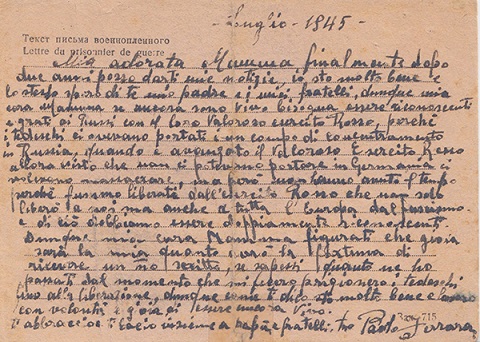 - Luglio - 1945 -
Текст письма военнопленного
Lettre du prisonnier de guerre
Mia adorata Mamma finalmente dopo
due anni posso darti mie notizie, io sto molto bene e
lo stesso spero di te mio padre e i miei fratelli, dunque mia
cara Mamma se ancora sono vivo bisogna essere riconoscenti
e grati ai Russi con il loro Valoroso esercito Rosso, perché
i tedeschi ci avevano portati in un campo di concentramento
in Russia, quando è avanzato il Valoroso Esercito Rosso
allora visto che non ci potevano portare in Germania ci
volevano massacrare, ma però non hanno avuto il tempo
perché fummo liberati dall'esercito Rosso che non solo
liberò a noi ma anche a tutta l'Europa dal fascismo
e di ciò dobbiamo essere doppiamente riconoscenti
Dunque mia cara Mamma figurati che gioia
sarà la mia quanto avrò la fortuna di
ricevere un tuo scritto, se sapessi quanto ne ho
passati dal momento che mi fecero prigioniero i tedeschi
fino alla liberazione, dunque come ti dico sto molto bene e lavoro
con volontà e gioia di essere ancora vivo.
T'abbraccio e ti bacio insieme a papà e fratelli. tuo Paolo Ferrara
Зак. 715